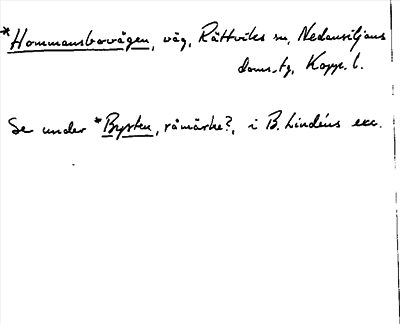 *Hommansbovägen, väg, Rättviks sn, Nedansiljans
doms.tg, Kopp. l.
Se under *Bysten, råmärke?, i B. Lindéns exc.